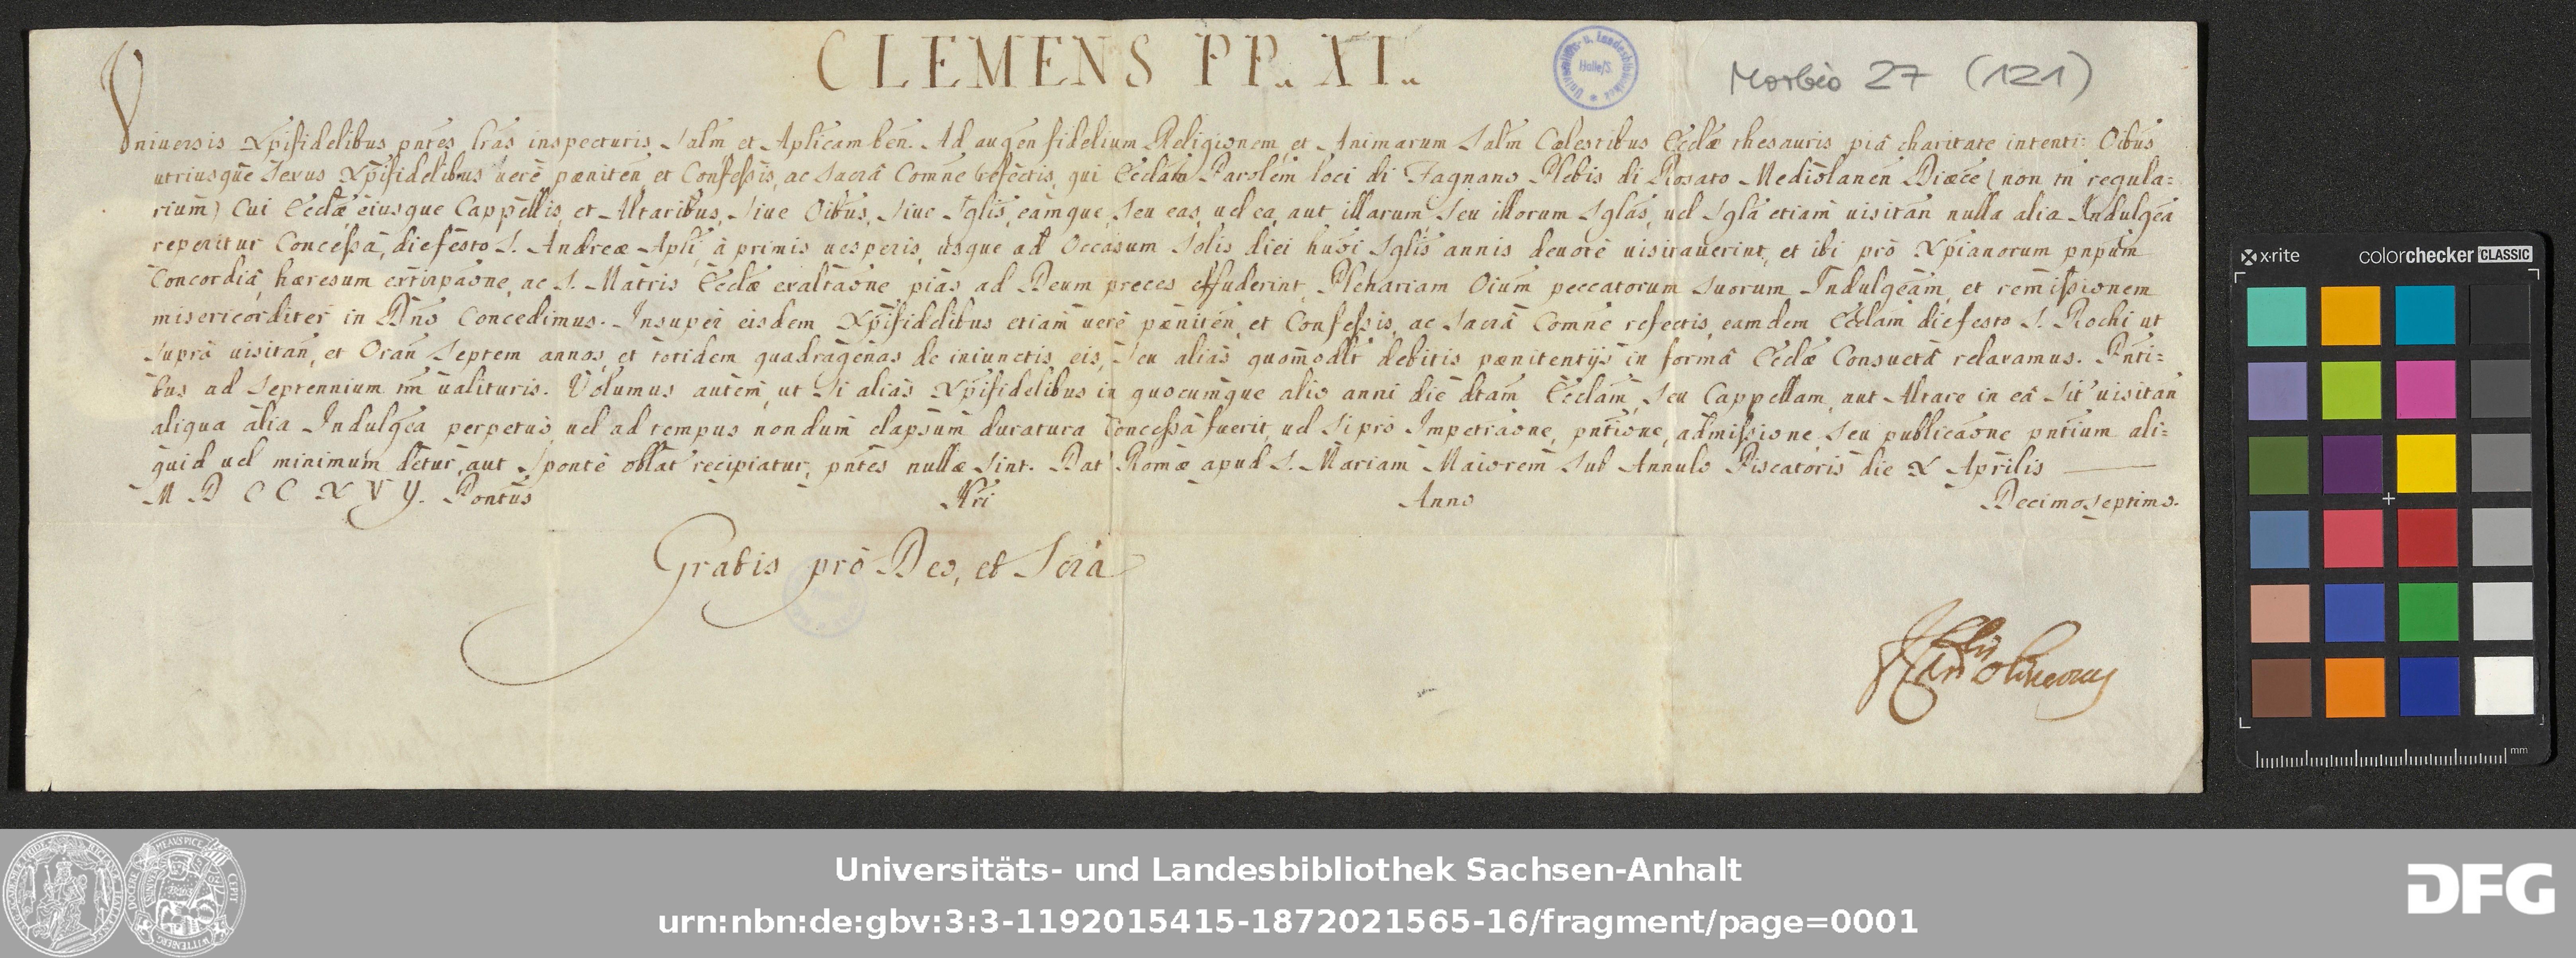 CLEMENS PP. XI.
Morbio 27 (121)
Vniuersis Xpifidelibus pntes lras inspecturis Salm et Aplicam ben. Ad augen fidelium Religionem, et Animarum Salm Cælestibus Ecclæ thesauris piâ charitate intenti: Oibus
utriusque Sexus Xpifidelibus uerè pœniten, et Confessis, ac Sacrâ Comne refectis, qui Ecclam Parolem loci di Fagnano Plebis di Rosato Mediolanen Diœce (non tn regula=
rium) Cui Ecclæ eiusque Cappellis, et Altaribus, siue Oibus, siue Sglis, eamque seu eas, uel ea, aut illarum seu illorum Sglas, uel Sgla etiam uisitan nulla alia Indulgea
reperitur Concessa, die festo S. Andreæ Apli, à primis uesperis, usque ad Occasum Solis diei huoi Sglis annis deuotè uisitauerint, et ibi prò Xpianorum pnpum
Concordiâ, hæresum extirpaone, ac S. Matris Ecclæ exaltaone pias ad Deum preces effuderint, Plenariam Oium peccatorum suorum Indulgeam, et remissionem
misericorditer in Dno Concedimus. Insuper eisdem Xpifidelibus etiam uerè pœniten, et Confessis, ac Sacrâ Comne refectis, eamdem Ecclam die festo S. Rochi ut
suprà uisitan, et Oran Septem annos, et totidem quadragenas de iniunctis, eis, seu alias quomodlt debitis pœnitentijs in formâ Ecclæ Consuetâ relaxamus. Pnti=
bus ad Septennium tm ualituris. Volumus autem, ut si alias Xpifidelibus in quocumque alio anni die dtam Ecclam, seu Cappellam, aut Altare in eâ sit' uisitan
aliqua alia Indulgea perpetuò, uel ad tempus nondum elapsum duratura Concessa fuerit, uel si prò Impetraone, pntione, admissione seu publicaone pntium ali=
quid uel minimum detur, aut sponte oblat recipiatur, pntes nullæ sint. Dat Romæ apud S. Mariam Maiorem sub Annulo Piscatoris die X Aprilis
M D C C X V Y. Pontus Nri Anno Decimoseptimo.
Gratis prò Deo, et Scrâ
Universitäts- und Landesbibliothek Sachsen-Anhalt
urn:nbn:de:gbv:3:3-1192015415-1872021565-16/fragment/page=0001
DFG
x-rite colorchecker CLASSIC
mm